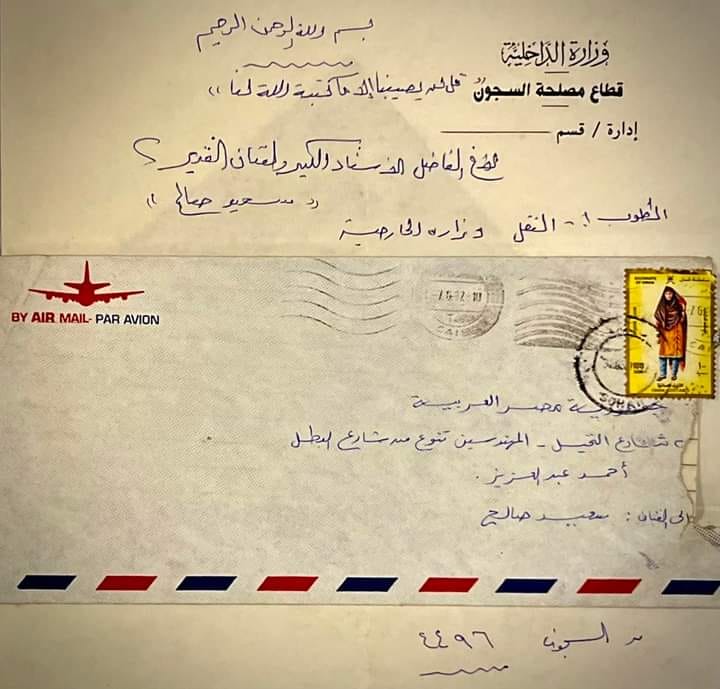 بسم الله الرحمن الرحيم
وزارة الداخلية
قطاع مصلحة السجون
قل لن يصيبنا إلا ما كتبه الله لنا »
إدارة / قسم
الأخ الفاضل الأستاذ الكبير والفنان القدير
سعيد صالح »
المطلوب :- النقل وزارة الخارجية
BY AIR MAIL- PAR AVION
جمهورية مصر العربية
شارع النخيل - المهندسين تنوع من شارع البطل
أحمد عبد العزيز .
إلى الفنان : سعيد صالح
من السجون ٤٤٩٦